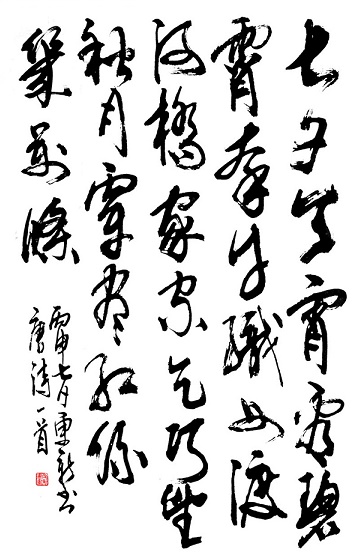 七夕今宵看碧
霄牵牛織女渡
河橋家家乞巧望
秋月穿尽紅絲
幾萬條
丙申七月書
唐诗一首